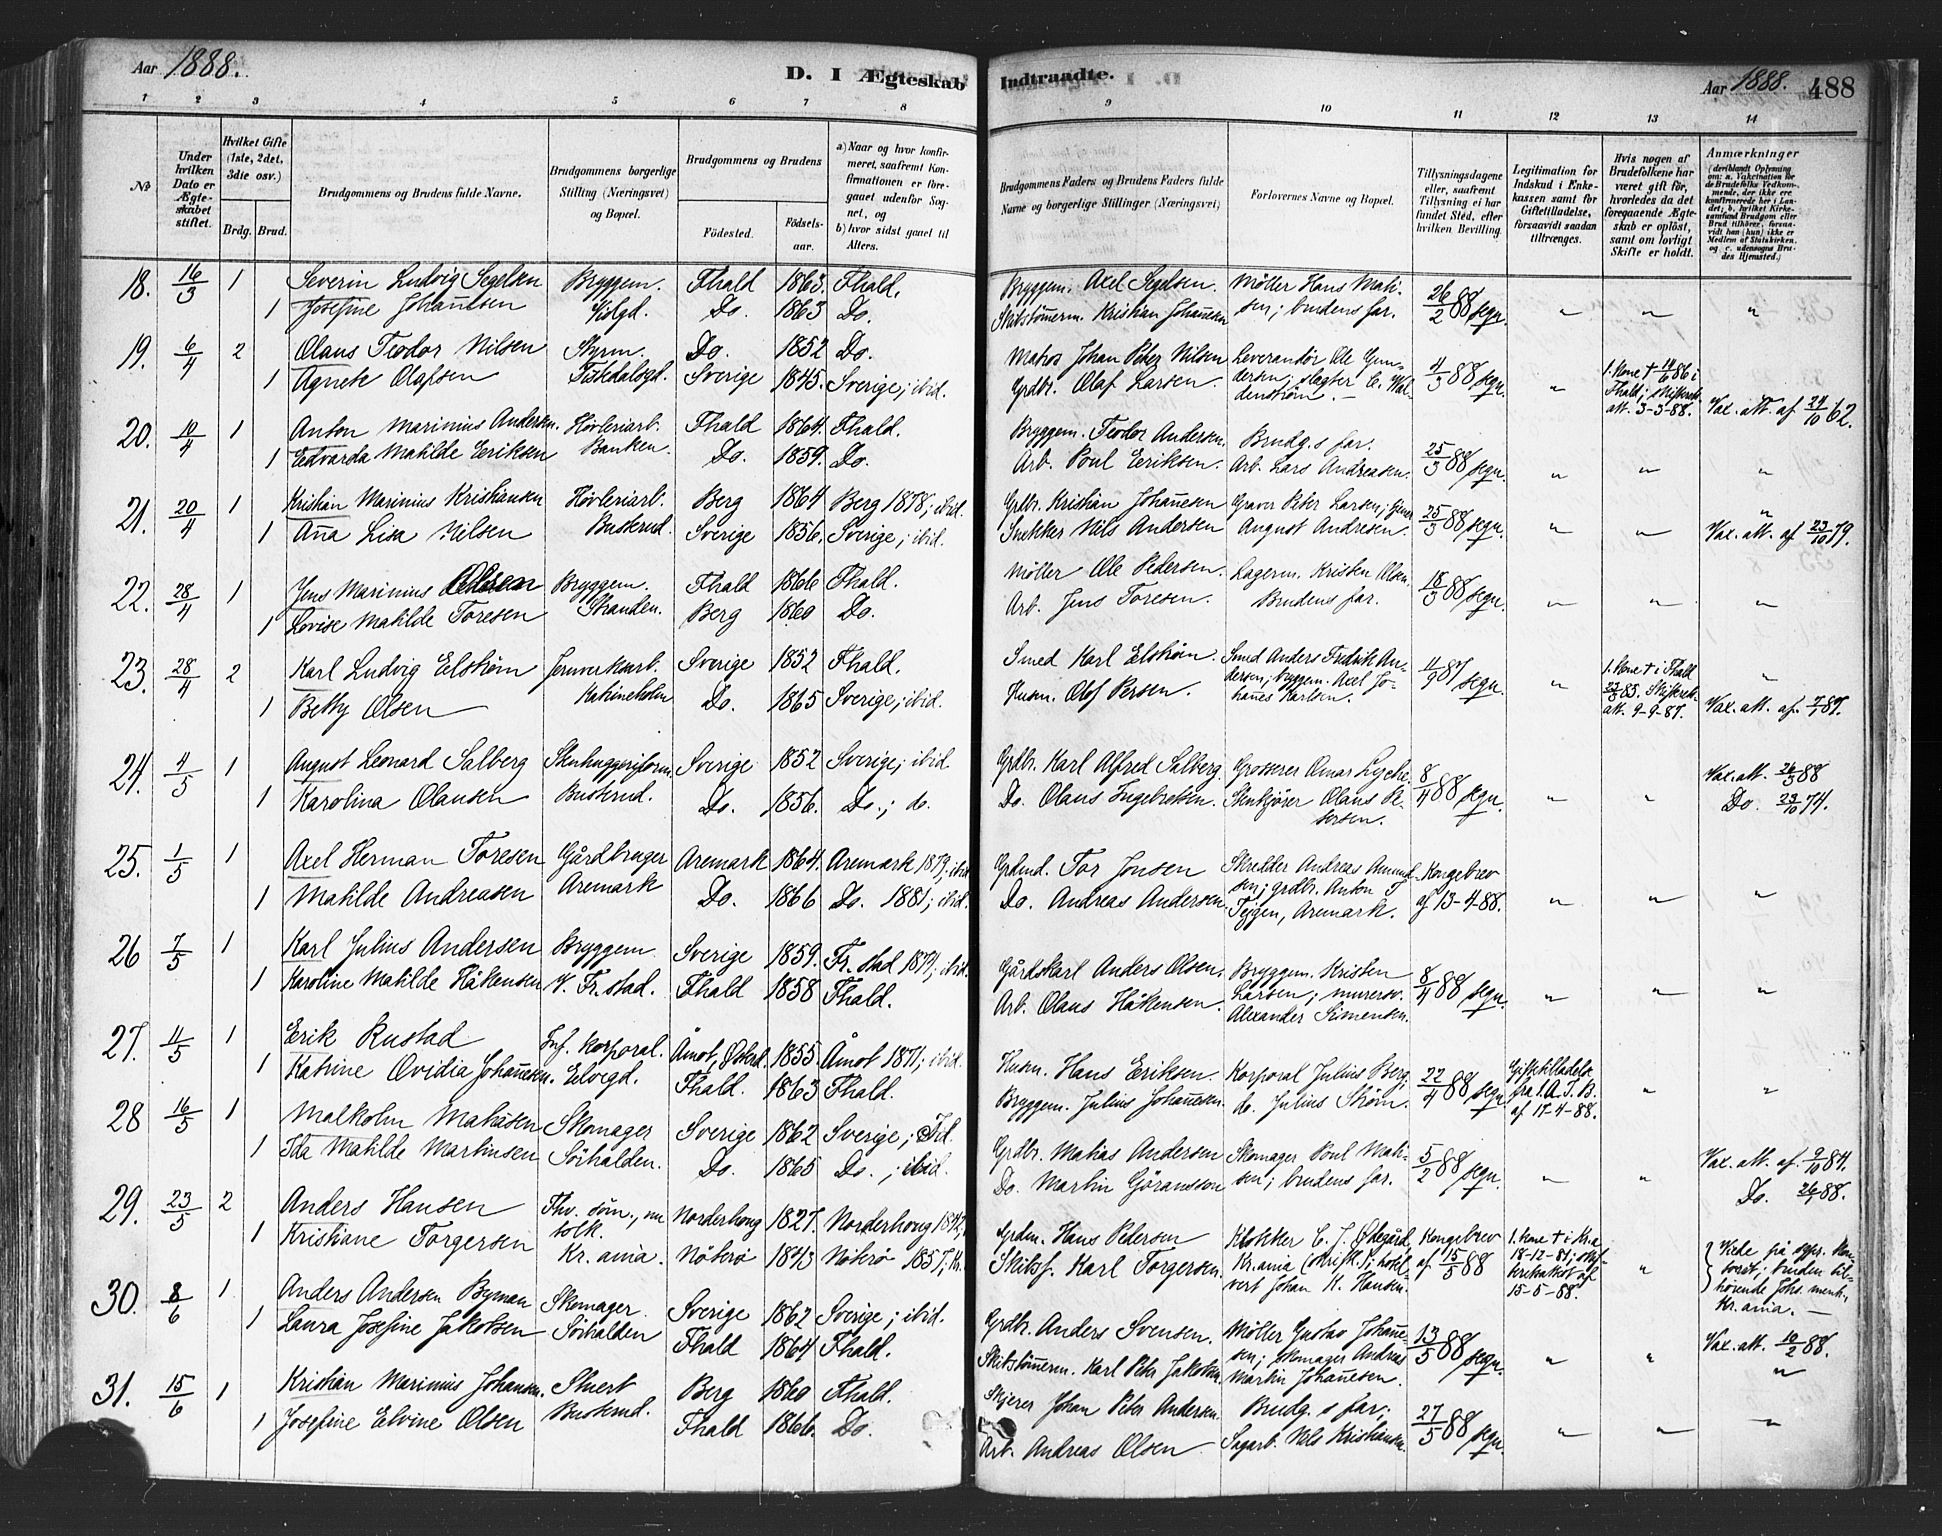 Aar 1888.
D. I Ægteskab
Indtraadte.
Aar 1888.
488
1 2 3 4 5 6 7 8 9 10 11 12 13 14
No
Under hvilken Dato er Ægteskabet stiftet.
Hvilket Gifte (1ste, 2det, 3die osv.)
Brdg. Brud.
Brudgommens og Brudens fulde Navne.
Brudgommens borgerlige Stilling (Næringsvei) og Bopæl.
Brudgommens og Brudens
Fødested.
Fødselsaar.
a) Naar og hvor konfirmeret, saafremt Konfirmationen er foregaaet udenfor Sognet, og
b) hvor sidst gaaet til Alters.
Brudgommens Faders og Brudens Faders fulde Navne og borgerlige Stillinger (Næringsvei)
Forlovernes Navne og Bopæl.
Tillysningsdagene eller, saafremt Tillysning ei har fundet Sted, efter hvilken Bevilling.
Legitimation for Indskud i Enkekassen samt for Giftetilladelse, forsaavidt saadan tiltrænges.
Hvis nogen af Brudefolkene har været gift før, hvorledes da det foregaaende Ægteskab er opløst, samt om lovligt Skifte er holdt.
Anmærkninger
18. 16/3 1 Severin Ludvig Segelsen Bryggem. Fhald 1863. Fhald. Bryggem. Axel Segelsen. Møller Hans Mathi- 26/2 88 segn. " " "
1 Josefine Johannesen Do. 1863 Do. Skibstømerm. Kristian Johannesen sen; brudens far.
19. 6/4 2 Olaus Teodor Nilsen Styrm. Do. 1852 Do. Matros Johan Peter Nilsen Leverandør Ole Gun- 4/3 88 segn. " 1. Kone † 14/6 86 i
1 Agnete Olafsen Sverige 1845. Sverige; ibid. Grdbr. Olaf Larsen. dersen, slagter C. Wal- Fhald; Skifteretsatt. 3-3-88. Vax. att. af 24/10 62.
denstrøm.
20. 10/4 1 Anton Marinius Andersen Høvleriarb. Fhald 1864. Fhald. Bryggem. Teodor Andersen. Brudg.s far. 25/3 88 segn. " " "
1 Edvarda Matilde Eriksen Banken. Do. 1859. Do. Arb. Poul Eriksen. Arb. Lars Andreasen.
21. 20/4 1 Kristian Marinius Kristiansen Høvleriarb. Berg 1864 Berg 1878; ibid. Grdbr. Kristian Johannesen Graver Peter Larsen; 25/3 88 segn. " " "
1 Anna Lisa Nilsen Buskrud. Sverige 1856. Sverige; ibid. Snekker Nils Andersen August Andresen. Vax. att. af 23/10 79.
22. 28/4 1 Jens Marinius Olsen Bryggem. Fhald 1866 Fhald. Møller Ole Pedersen. Lagerm. Kristen Olsen. 18/3 88 segn. " " "
1 Lovise Matilde Toresen Stranden. Berg 1860 Do. Arb. Jens Toresen. Brudens far.
23. 28/4 2 Karl Ludvig Elstrøm Jernverksarb. Sverige 1852 Fhald. Smed Karl Elstrøm. Smed Anders Fredrik An- 11/9 87 segn. " 1. Kone † i Fhald "
1 Betty Olsen Katrineholm Do. 1865 Sverige; ibid. Husm. Olof Persen. dersen; bryggem. Axel Jo- 85. Skifterets-
hanes Karlsen. att. 9-9-87. Vax. att. af. 7/7 87.
24. 4/5 1 August Leonard Salberg Stenhuggeriform. Sverige 1852 Sverige; ibid. Grdbr. Karl Alfred Salberg. Grosserer Omar Lyche. 8/4 88 segn. " " Vax. att. 26/3 88
1 Karolina Olausen Buskrud. Do. 1856. Do.; do. Do. Olaus Ingebretsen. Stenkjører Olaus Pe- Do. 23/10 74.
tersen.
25. 1/5 1 Axel Herman Toresen Gårdbruger Aremark 1864. Aremark 1879; ibid. Grdmd. Tor Jonsen Skredder Andreas Amund- Kongebrev
1 Matilde Andreasen Aremark Do. 1866 Do. 1881; ibid. Do. Andreas Andersen. sen; grdbr. Anton T. af 13-4-88. " " "
Tejgen, Aremark.
26 7/5 1 Karl Julius Andersen Bryggem. Sverige 1859. Fr.stad 1874; ibid. Gårdskarl Anders Olsen. Bryggem. Kristen 8/4 88 segn. " " "
1 Karoline Matilde Håkensen V. Fr.stad. Fhald 1858 Fhald. Arb. Olaus Håkensen. Larsen; murersv. Alexander Simensen.
27. 11/5 1 Erik Rustad Inf. korporal. Åmot, Østerd. 1855 Åmot 1871; ibid. Husm. Hans Eriksen. Korporal Julius Berg; 22/4 88 segn. Giftetilladelse " "
1 Katrine Ovidia Johannesen. Fhald. 1863 Fhald. Bryggem. Julius Johannesen. do. Julius Strøm. fra 1. A. I. B. af 17-4-88.
28 16/5 1 Malkolm Matisen Skomager Sverige 1862 Sverige; Ibid. Grdbr. Matias Andersen Skomager Poul Mati- 5/2 88 segn. " " Vax. att. af. 9/10 84.
1 Ida Matilde Martinsen Sørhalden. Do. 1865 Do.; ibid. Do. Martin Göransson sen; brudens far. Do. 26/1 88.
29. 23/5 2 Anders Hansen Fhv. søm., nu Norderhoug 1827. Norderhoug 1842; Grdm. Hans Pedersen Klokker C. J. Ødegård, Kongebrev 1. Kone † i Kr.a " Viede på
1 Kristiane Torgersen tolk. Kr.ania. Nøterø 1843 Nøterø 1857; Kr. Skibsf. Karl Torgersen. Kr.ania (skriftl.); hotel- af 15/5 88 18-12-81; skifteriattest af 15-5-88. bruden til-
vert Johan H. Hansen. hørende Johs. menh., Kr.ania.
30. 8/6 1 Anders Andersen Byman Skomager Sverige 1862 Sverige; ibid. Grdbr. Anders Svensen. Møller Gustav Johanne- 13/5 88 segn. " " Vax. att. 10/2 88.
1 Laura Josefine Jakobsen Sørhalden Fhald 1864 Fhald. Skibstømerm. Karl Peter Jakobsen. sen; skomager Andreas Martin Johannesen. "
31. 15/6 1 Kristian Marinius Johansen. Stuert Berg 1860 Fhald. Skjerer Johan Peter Andersen. Brudg.s far; 27/5 88 segn. " " "
1 Josefine Elvine Olsen Buskrud. Fhald 1866. Do. Arb. Andreas Olsen Sagarb. Nils Kristiansen